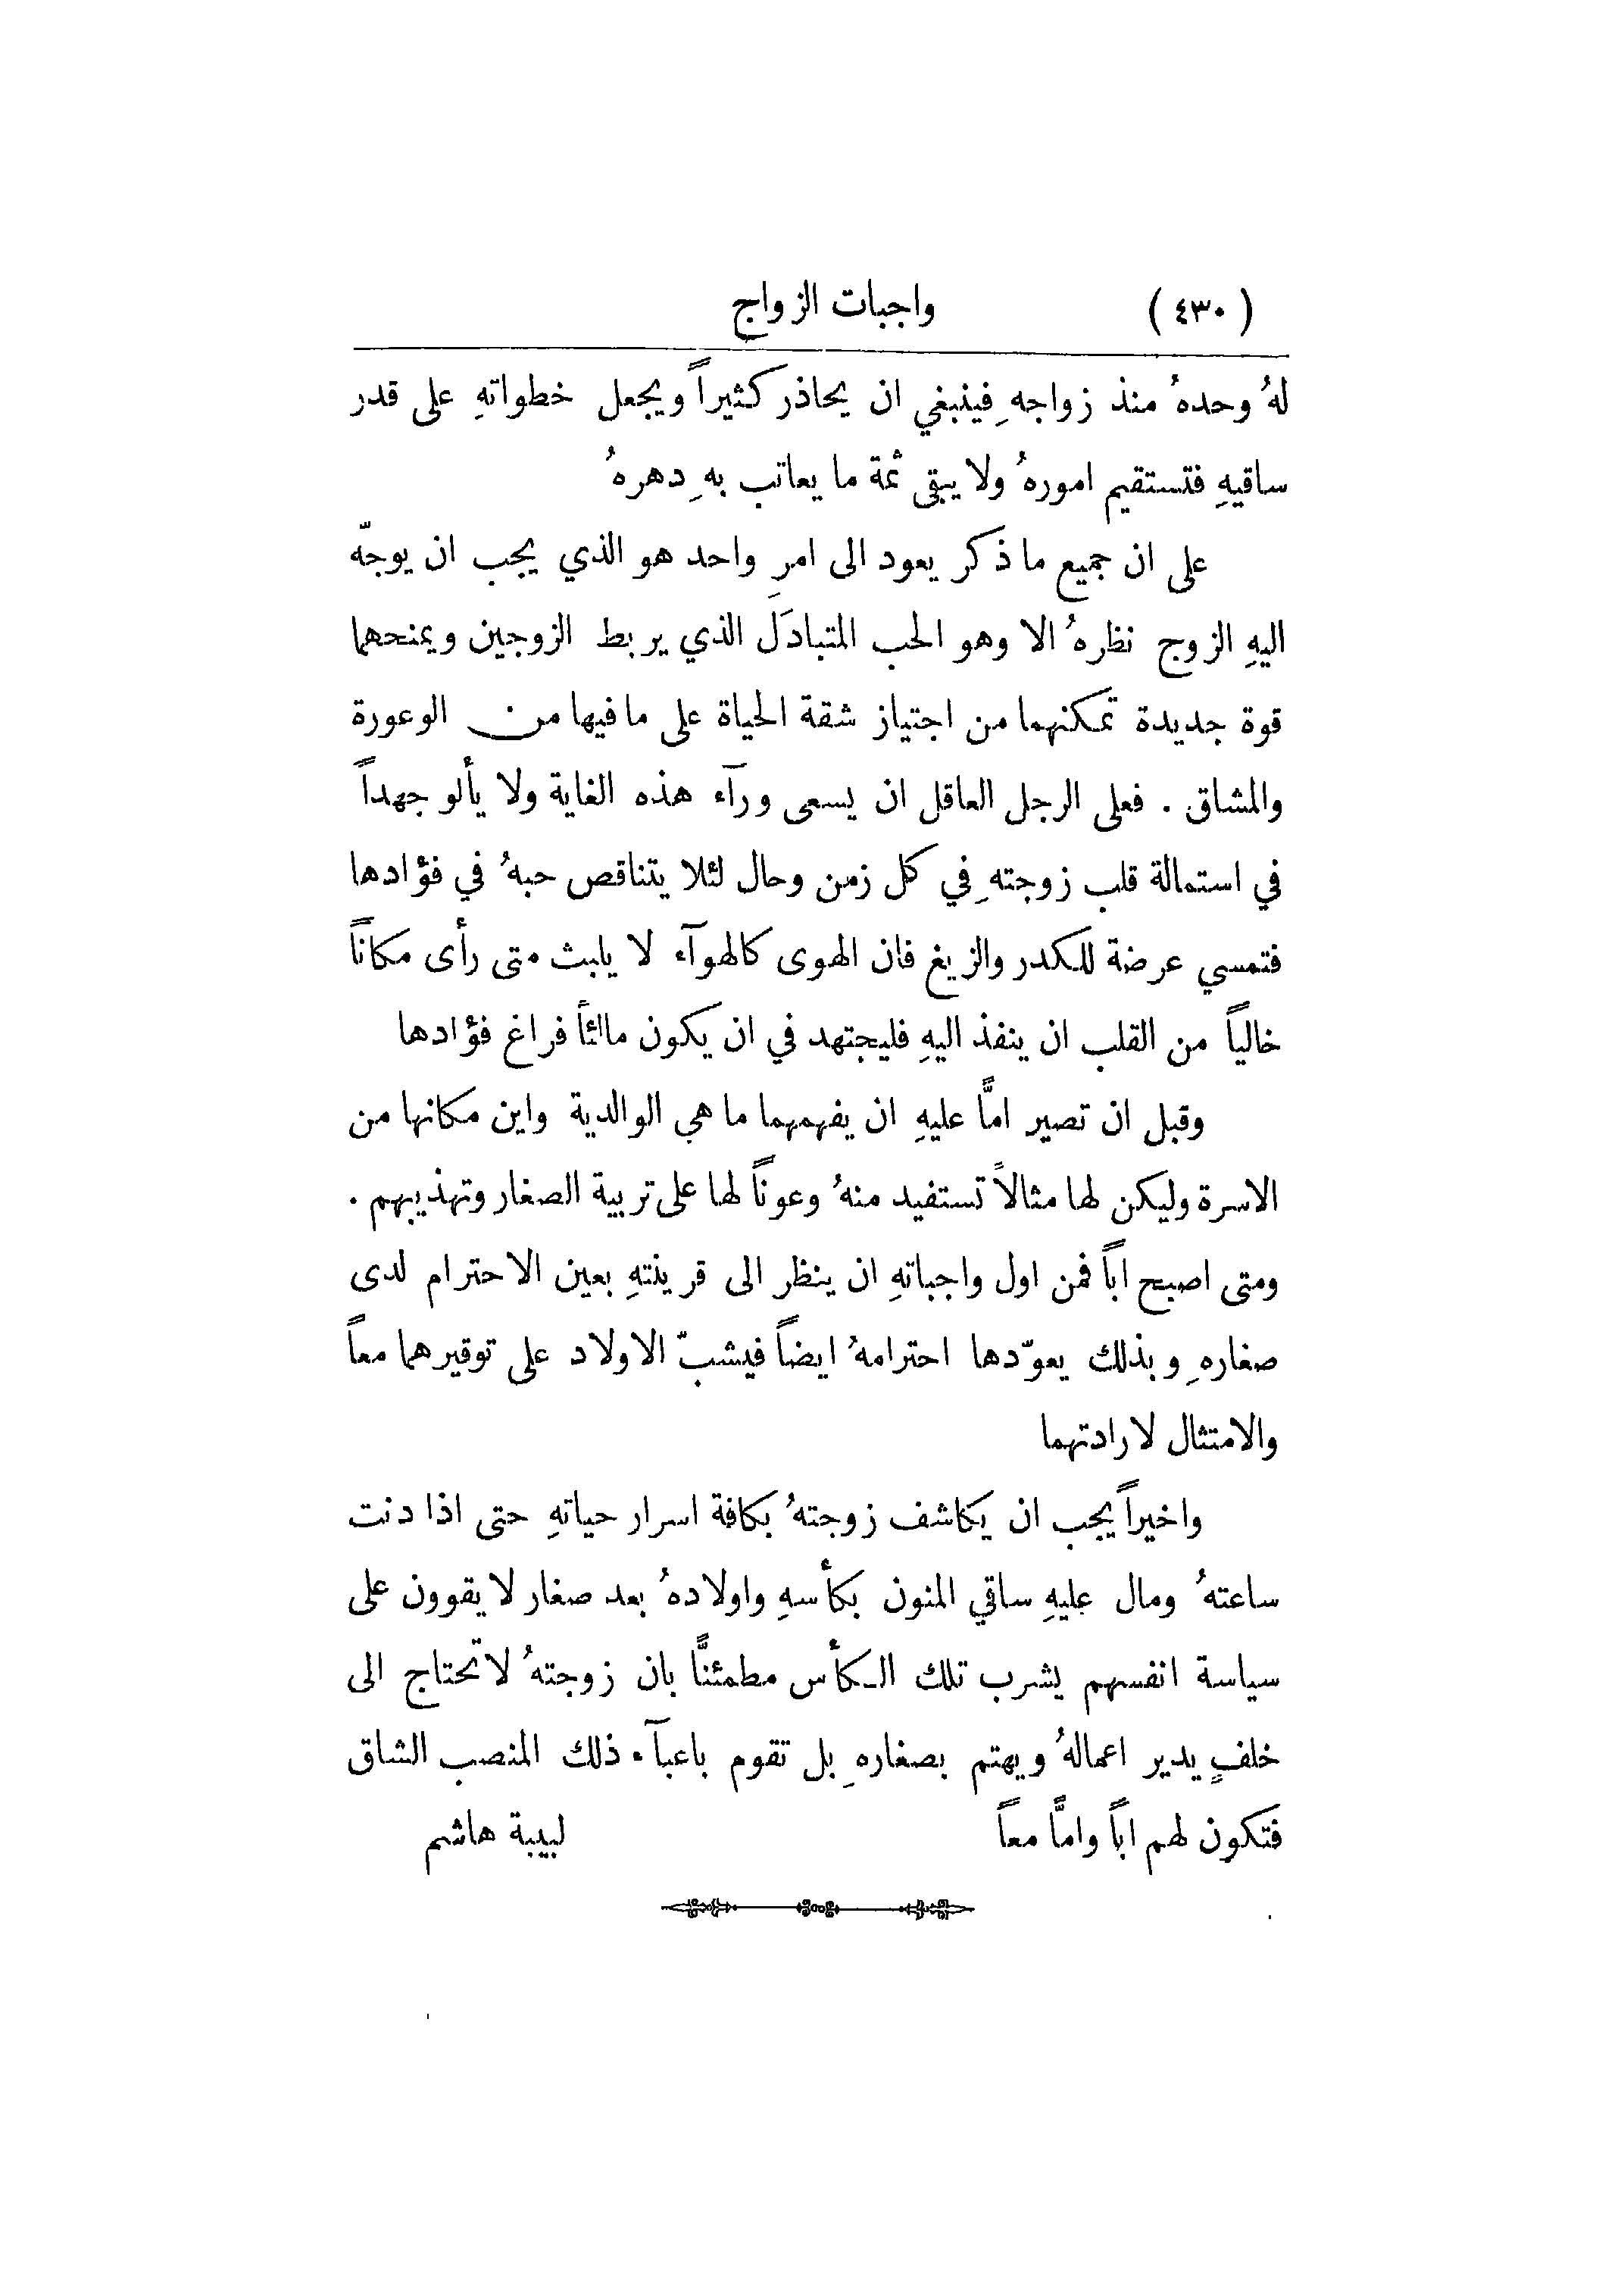 ( ٤٣٠ ) واجبات الزواج
لهُ وحدهُ منذ زواجهِ فينبغي ان يحاذر كثيراً ويجعل خطواتهِ على قدر
ساقيهِ فتستقيم امورهُ ولا يبقى ثمة ما يعاتب بهِ دهرهُ
على ان جميع ما ذكر يعود الى امرٍ واحد هو الذي يجب ان يوجّه
اليهِ الزوج نظرهُ الا وهو الحب المتبادَل الذي يربط الزوجين ويمنحهما
قوة جديدة تمكنهما من اجتياز شقة الحياة على ما فيها من الوعورة
والمشاق . فعلى الرجل العاقل ان يسعى ورآء هذه الغاية ولا يألو جهداً
في استمالة قلب زوجتهِ في كل زمن وحال لئلا يتناقص حبهُ في فؤادها
فتمسي عرضة للكدر والزيغ فان الهوى كالهوآء لا يلبث متى رأى مكاناً
خالياً من القلب ان ينفذ اليهِ فليجتهد في ان يكون مالئاً فراغ فؤادها
وقبل ان تصير امًّا عليهِ ان يفهمهما ما هي الوالدية واين مكانها من
الاسرة وليكن لها مثالاً تستفيد منهُ وعوناً لها على تربية الصغار وتهذيبهم .
ومتى اصبح اباً فمن اول واجباتهِ ان ينظر الى قرينتهِ بعين الاحترام لدى
صغارهِ وبذلك يعوّدها احترامهُ ايضاً فيشبّ الاولاد على توقيرهما معاً
والامتثال لارادتهما
واخيراً يجب ان يكاشف زوجتهُ بكافة اسرار حياتهِ حتى اذا دنت
ساعتهُ ومال عليهِ ساقي المنون بكأسهِ واولادهُ بعد صغار لا يقوون على
سياسة انفسهم يشرب تلك الكأس مطمئنًّا بان زوجتهُ لا تحتاج الى
خلفٍ يدير اعمالهُ ويهتم بصغارهِ بل تقوم باعبآء ذلك المنصب الشاق
فتكون لهم اباً وامًّا معاً لبيبة هاشم